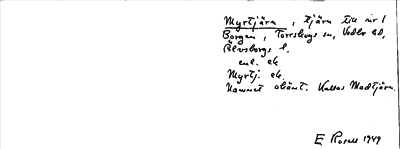 Myrtjärn, tjärn till nr 1
Borgen, Torrskogs sn, Vedbo hd,
Älvsborgs l.
enl. ek
Myrtj. ek.
Namnet okänt. Kallas Madtjärn.
E Rosell 1949